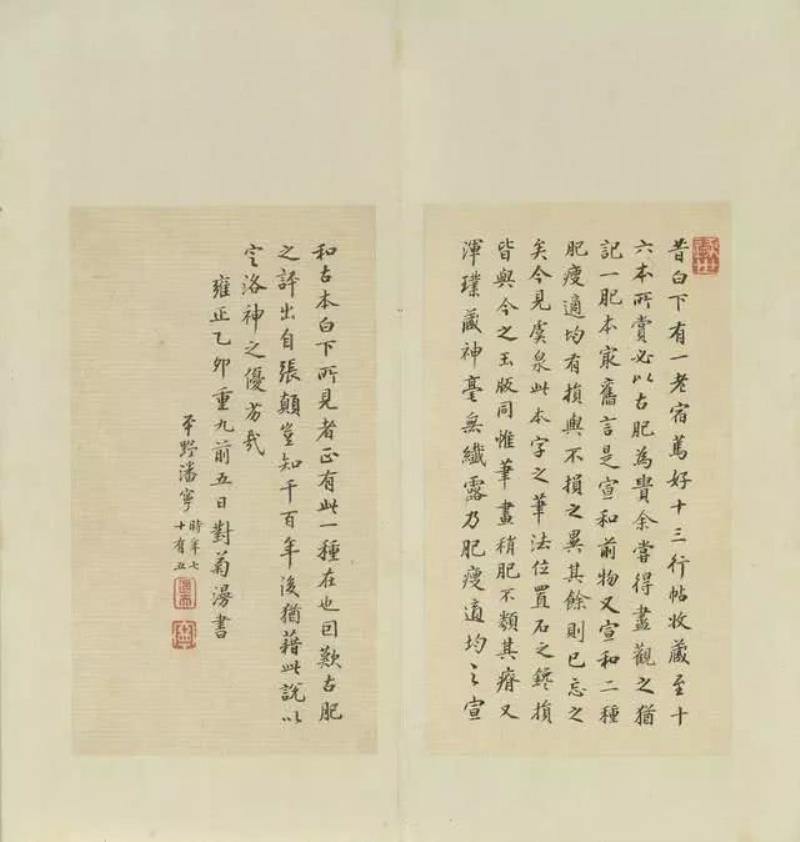 昔白下有一老宿篤好十三行帖收藏至十
六本所賞必以古肥為貴余嘗得盡觀之猶
記一肥本寂舊言是宣和前物又宣和二種
肥瘦適均有損與不損之異其餘則已忘之
矣今見虞泉此本字之筆法位置石之鑱損
皆與今之玉版同惟筆畫稍肥不類其瘠又
渾璞藏神毫無纖露乃肥瘦適均之宣
和古本白下所見者正有此一種在也回歎古肥
之評出自張顛豈知千百年後猶藉此說以
定洛神之優劣哉
雍正乙卯重九前五日對菊漫書
平野潘寧時年七
十有五